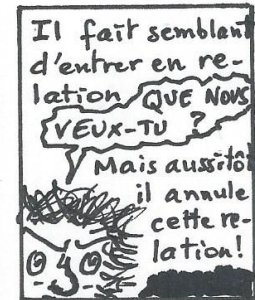 Il fait semblant
d'entrer en re-
lation QUE NOUS
VEUX-TU ?
Mais aussitôt
il annule
cette re-
lation!